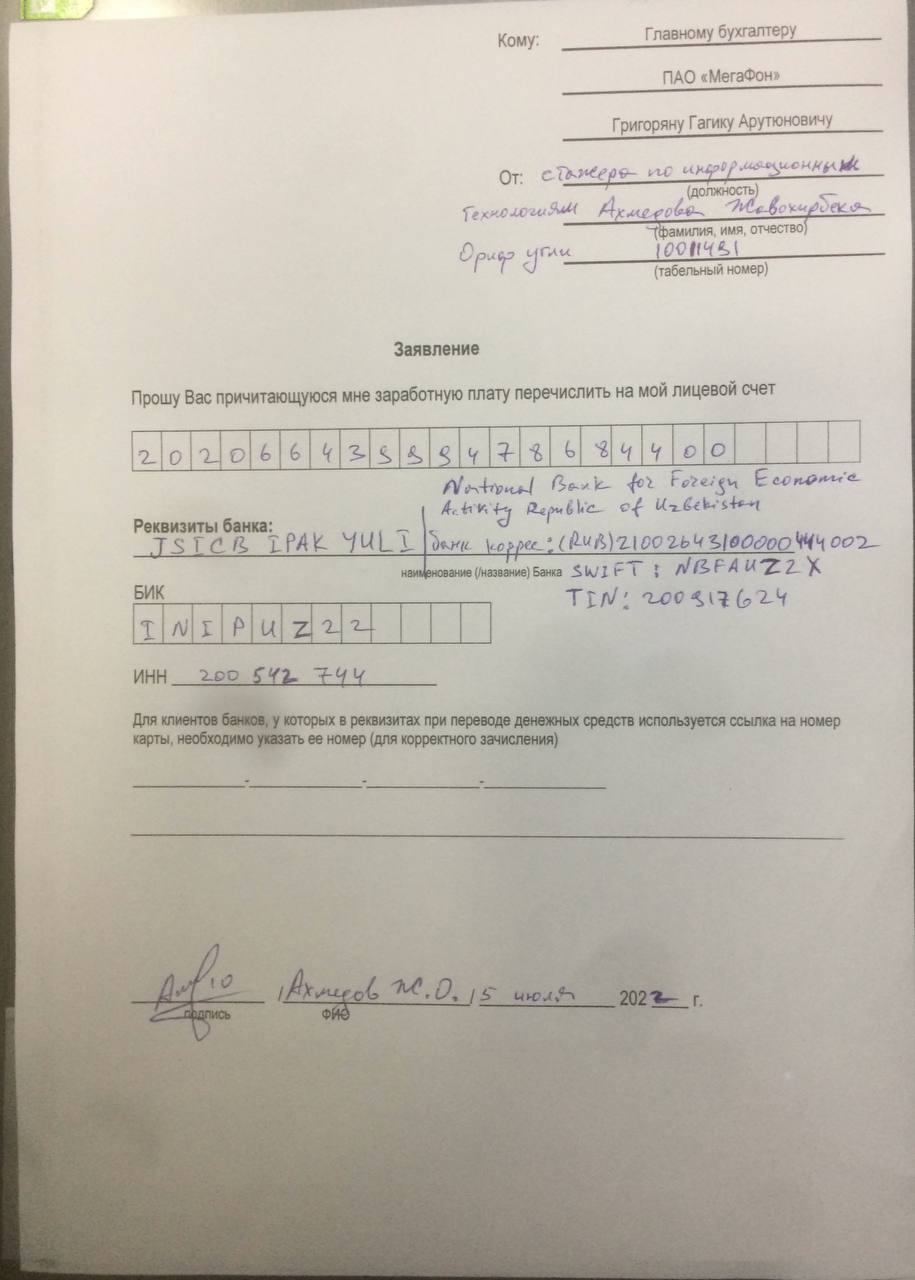 Кому: Главному бухгалтеру
ПАО «МегаФон»
Григоряну Гагику Арутюновичу
От: стажера по информационным
(должность)
технологиям Ахмедова Жавохирбека
(фамилия, имя, отчество)
Ориф угли 10011491
(табельный номер)
Заявление
Прошу Вас причитающуюся мне заработную плату перечислить на мой лицевой счет
20206643999478684400
National Bank for Foreign Economic
Activity Republic of Uzbekistan
Реквизиты банка:
JSICB IPAK YULI банк коррес: (RUB) 21002643100000444002
наименование (/название) Банка SWIFT: NBFAUZ2X
БИК TIN: 200917624
INIPUZ22
ИНН 200 542 744
Для клиентов банков, у которых в реквизитах при переводе денежных средств используется ссылка на номер
карты, необходимо указать ее номер (для корректного зачисления)
/Ахмедов Ж.О./ 5 июля 2022 г.
подпись ФИО